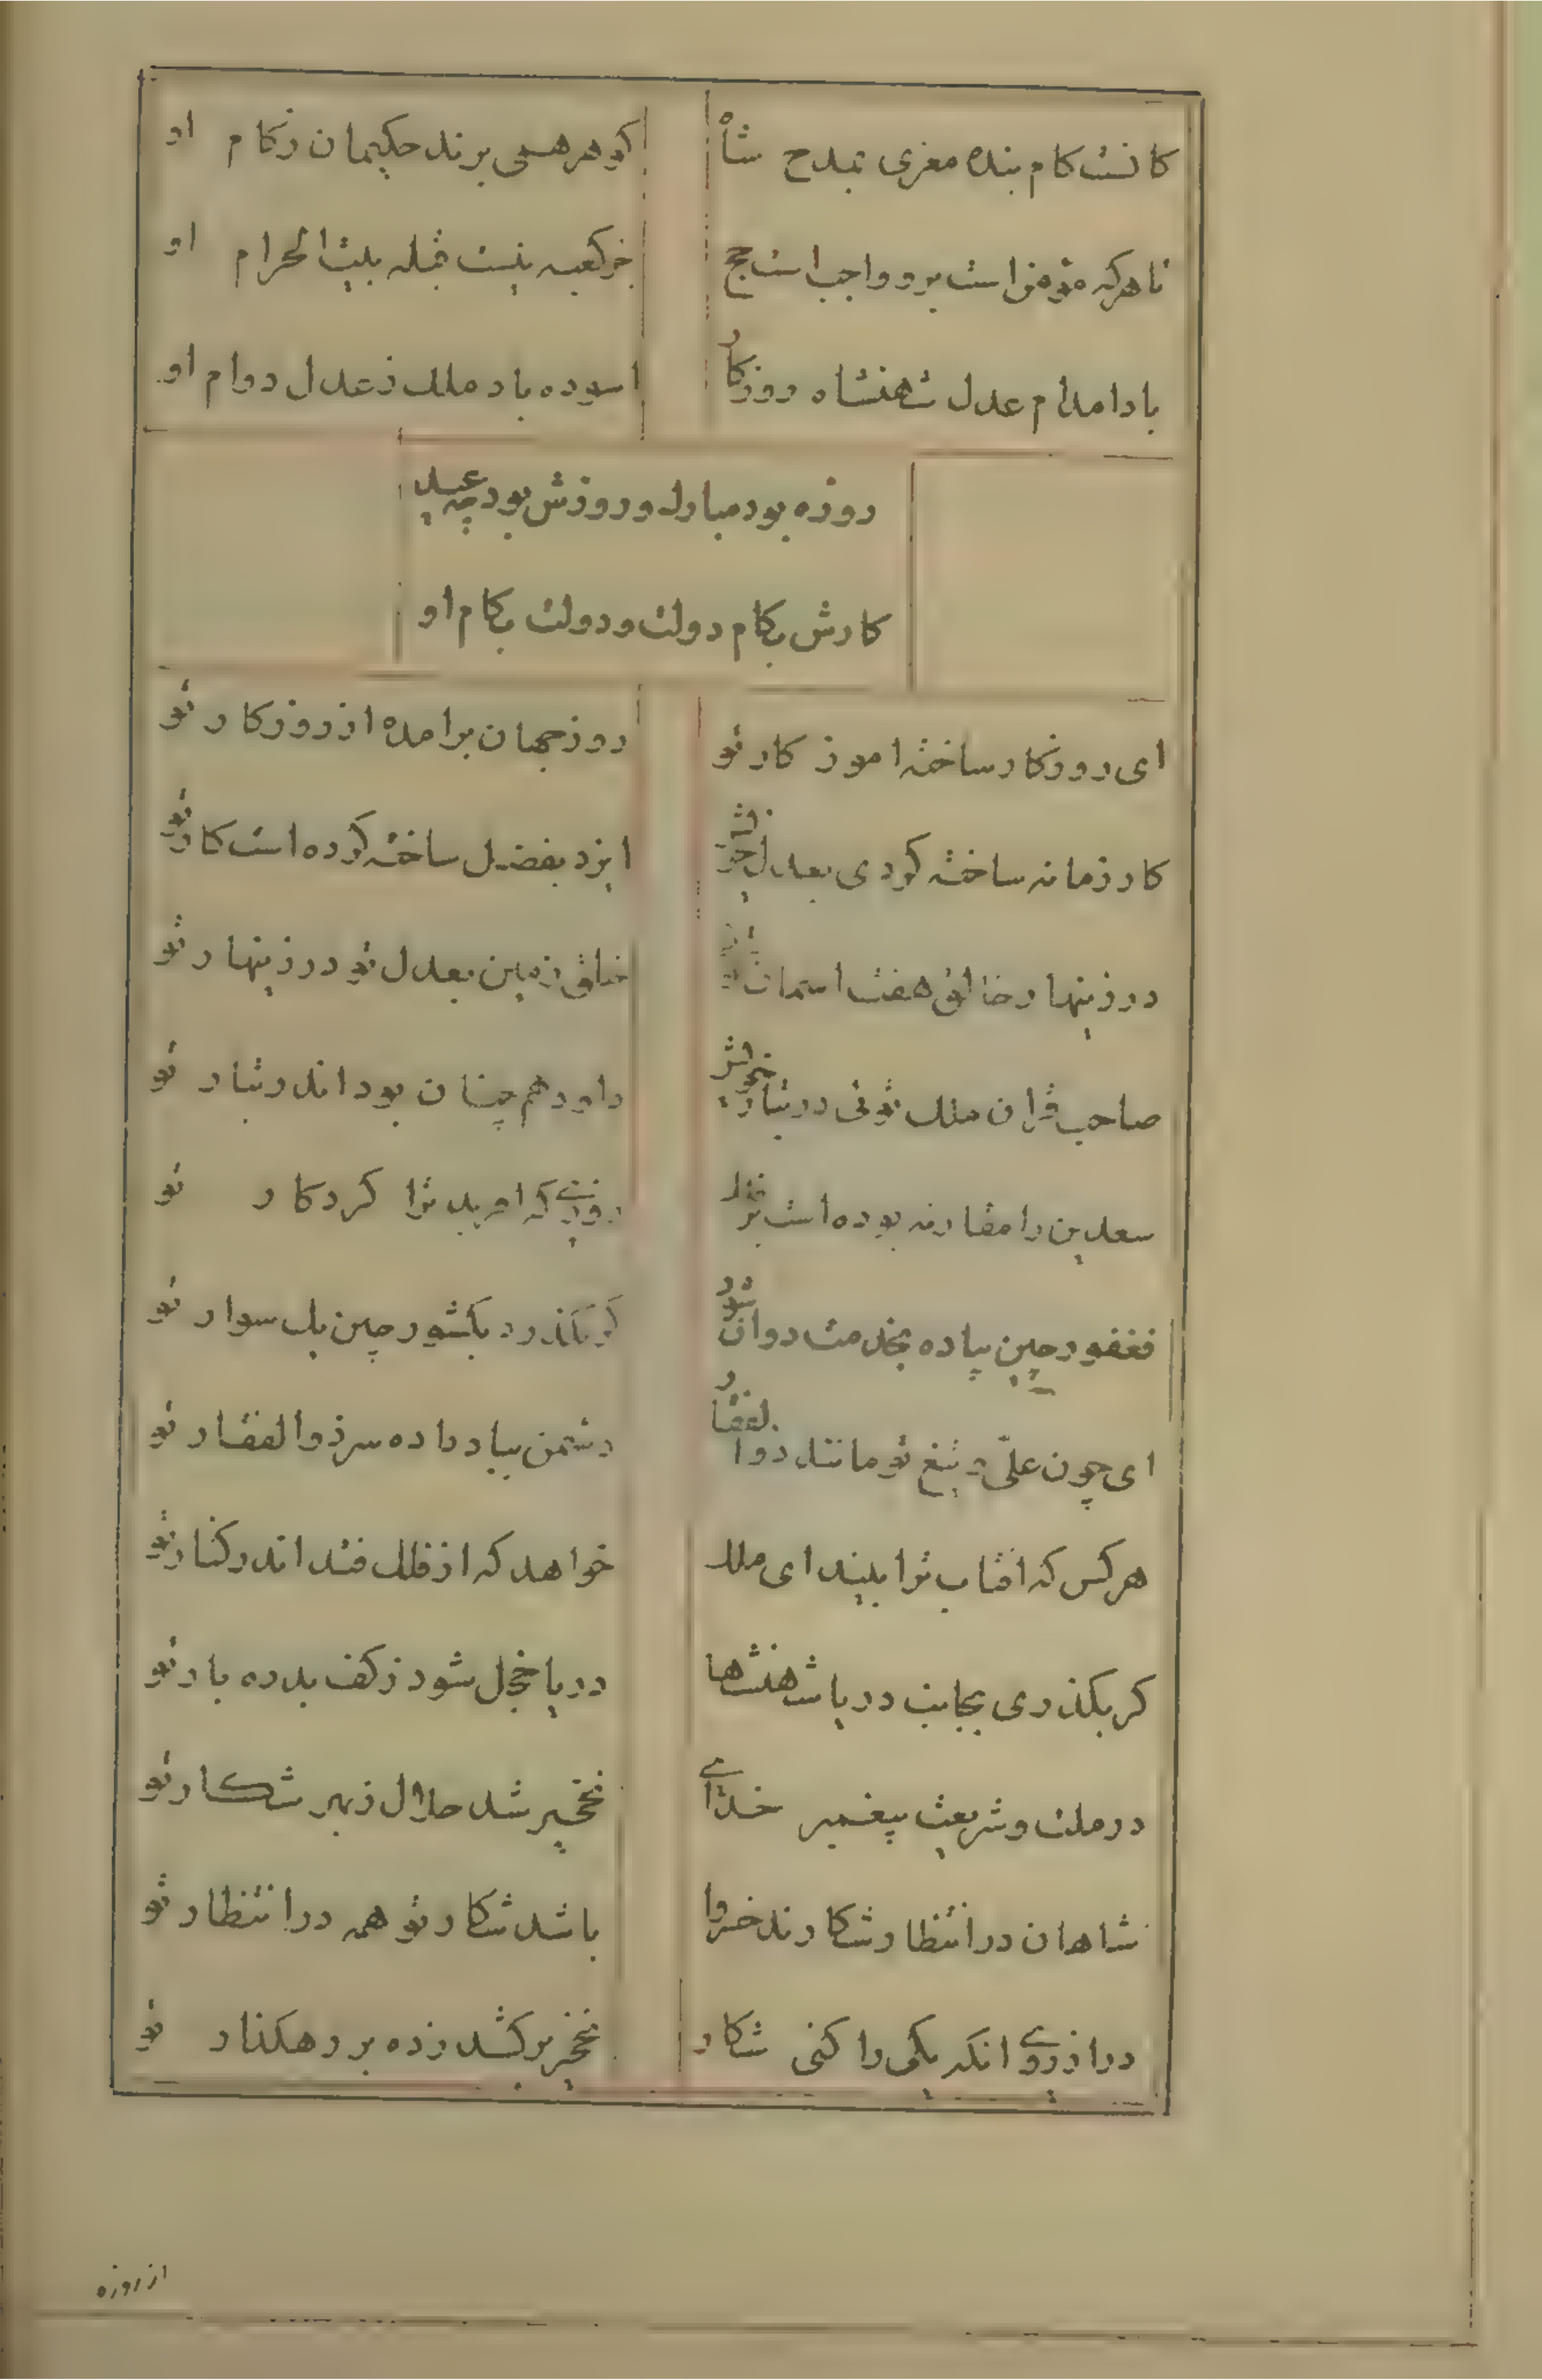 کانست کام بنده معزی بمدح شاه
کوهر همی برند حکیمان زکام او
تا هرکه مؤمن است برو واجب است حج
جز کعبه نیست قبله بیت الحرام او
بادا مدام عدل شهنشاه روزکار
اسوده باد ملک ز عدل دوام او
روزه بود مبارک و روزش بود چو عید
کارش بکام دولت و دولت بکام او
ای روزکار ساخته اموز کار تو
روز جهان برامده از روزکار تو
کار زمانه ساخته کردی بعدل خویش
ایزد بفضل ساخته کرده است کار تو
در زینهار خالق هفت اسمان
خلق زمین بعدل تو در زینهار تو
صاحب قران ملک توئی در تبار خویش
داود هم چنان بود اندر تبار تو
سعدین را مقارنه بوده است
روزی که افرید ترا کردکار تو
فغفور چین پیاده بخدمت دوان شود
کر بکذرد بکشور چین یک سوار تو
ای چون علی و تیغ تو مانند ذوالفقار
دشمن بباد داده سر ذوالفقار تو
هر کس که افتاب ترا بیند ای ملک
خواهد که از فلک فتد اندر کنار تو
کر بکذری بجانب دریا شهنشها
دریا خجل شود ز کف بدره بار تو
در ملت و شریعت پیغمبر خدای
نخچیر شد حلال ز بهر شکار تو
شاهان در انتظار شکارند خسروا
باشد شکار تو همه در انتظار تو
در ارزوی انکه یکی را کنی شکار
نخچیر برکشد رده بر رهکذار تو
از روزه